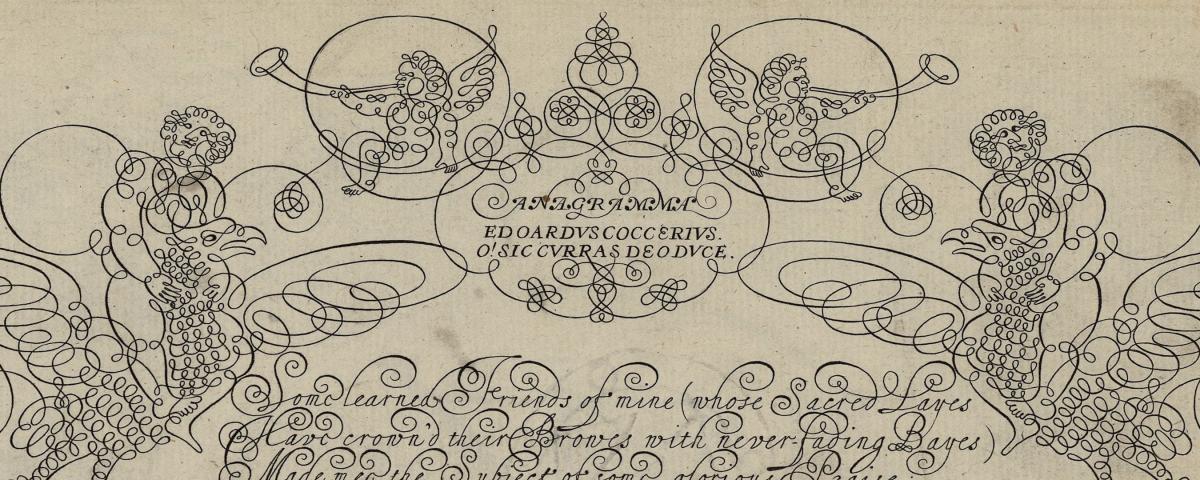 ANAGRAMMA
EDOARDVS COCCERIVS.
O! SIC CVRRAS DEO DVCE.
Some learned Friends of mine (whose Sacred Layes
Have crown'd their Browes with never-fading Bayes)
Made mee the Subject of some glorious Praise